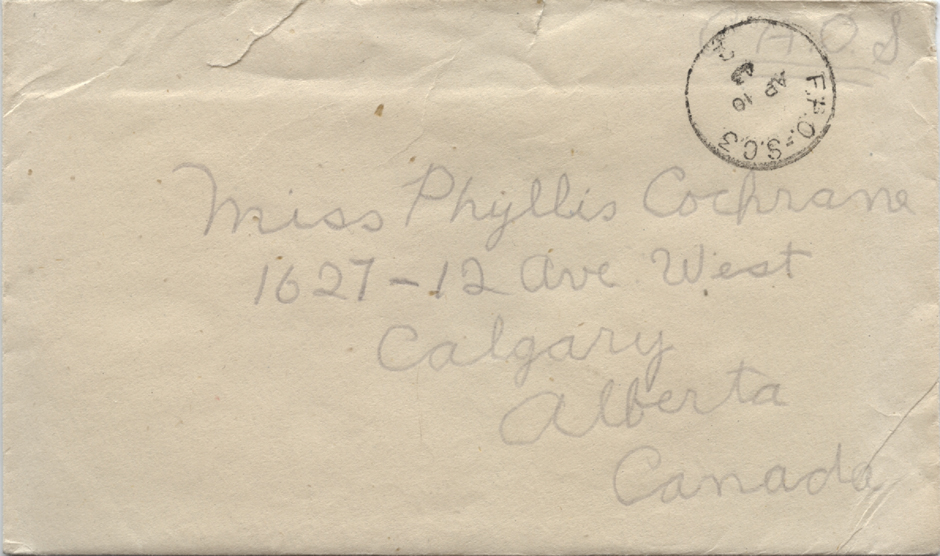 O A. O S
F.P.O.-S.C.3
AP 10
43
Miss Phyllis Cochrane
1627-12 Ave West
Calgary
Alberta
Canada